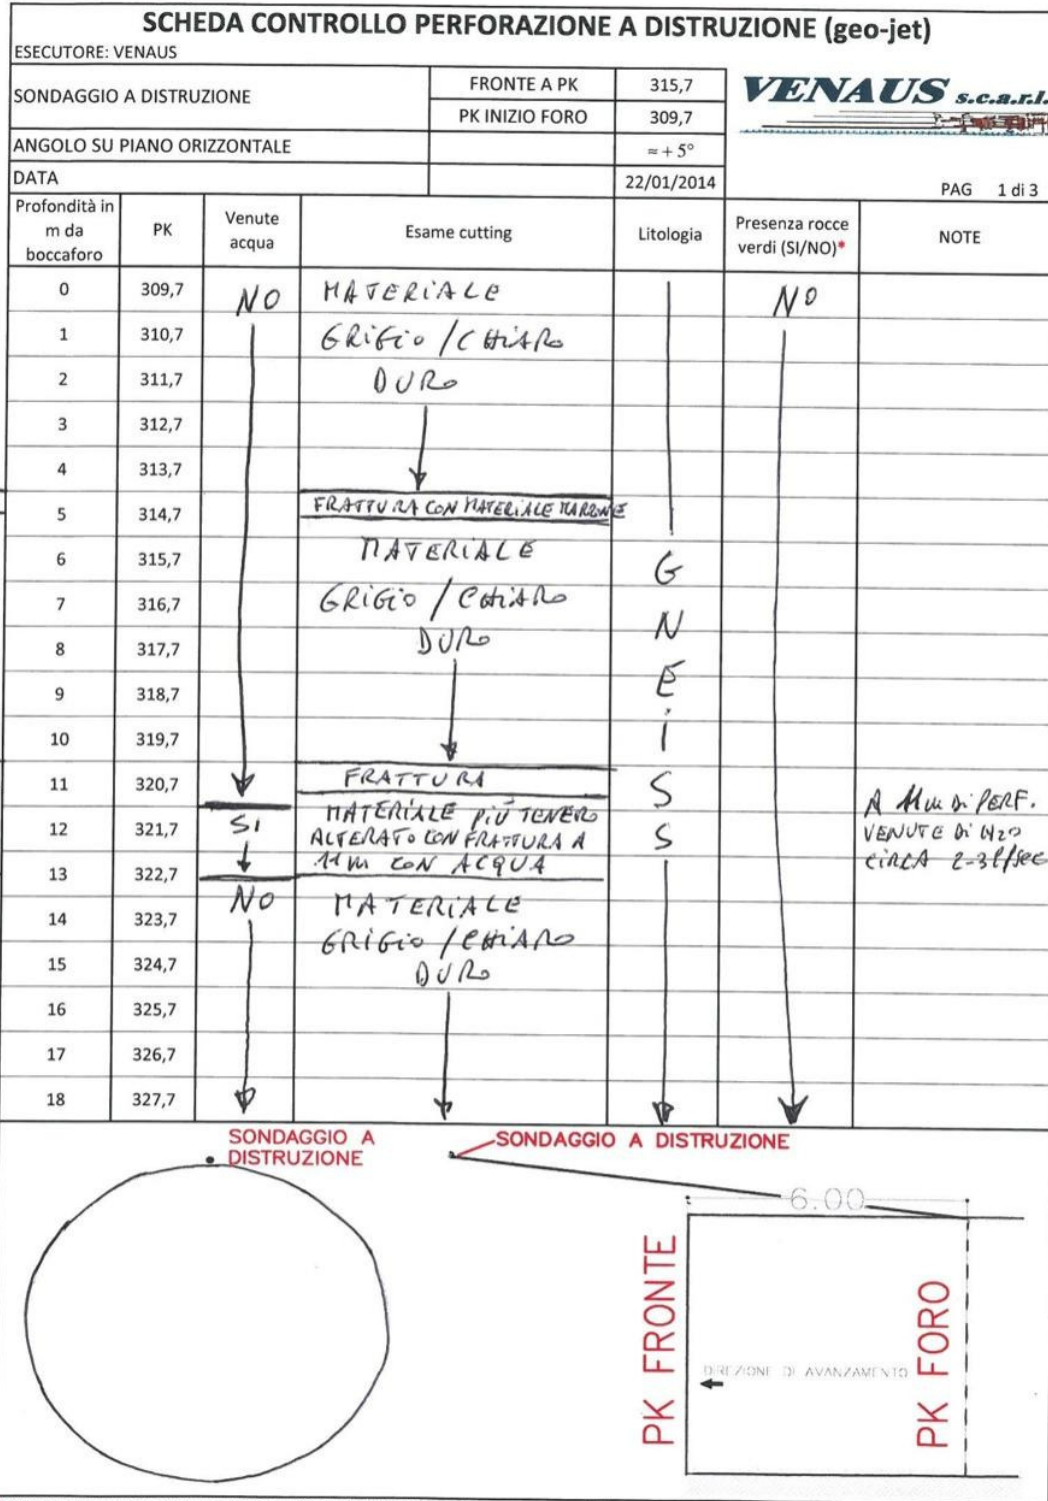 SCHEDA CONTROLLO PERFORAZIONE A DISTRUZIONE (geo-jet)
ESECUTORE: VENAUS
SONDAGGIO A DISTRUZIONE
FRONTE A PK 315,7
PK INIZIO FORO 309,7
VENAUS s.c.a.r.l.
ANGOLO SU PIANO ORIZZONTALE ≈ + 5°
DATA 22/01/2014
PAG 1 di 3
Profondità in m da boccaforo PK Venute acqua Esame cutting Litologia Presenza rocce verdi (SI/NO)* NOTE
0 309,7 NO MATERIALE NO
1 310,7 GRIGIO / CHIARO
2 311,7 DURO
3 312,7
4 313,7
5 314,7 FRATTURA CON MATERIALE MARRONE
6 315,7 MATERIALE G
7 316,7 GRIGIO / CHIARO N
8 317,7 DURO
9 318,7 E
10 319,7 i
11 320,7 FRATTURA S
12 321,7 SI MATERIALE PIÙ TENERO S
ALTERATO CON FRATTURA A
13 322,7 11 m CON ACQUA
A 11 m Di PERF.
VENUTE Di H2O
CIRCA 2-3 l/sec
14 323,7 NO MATERIALE
15 324,7 GRIGIO / CHIARO
DURO
16 325,7
17 326,7
18 327,7
SONDAGGIO A
DISTRUZIONE
SONDAGGIO A DISTRUZIONE
6.00
PK FRONTE
DIREZIONE DI AVANZAMENTO
PK FORO